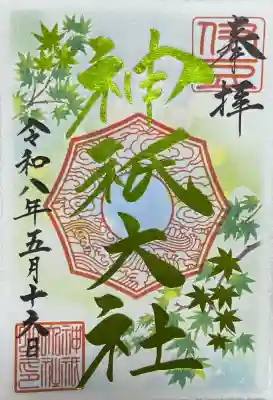 奉拝
神祇大社
令和八年五月十六日